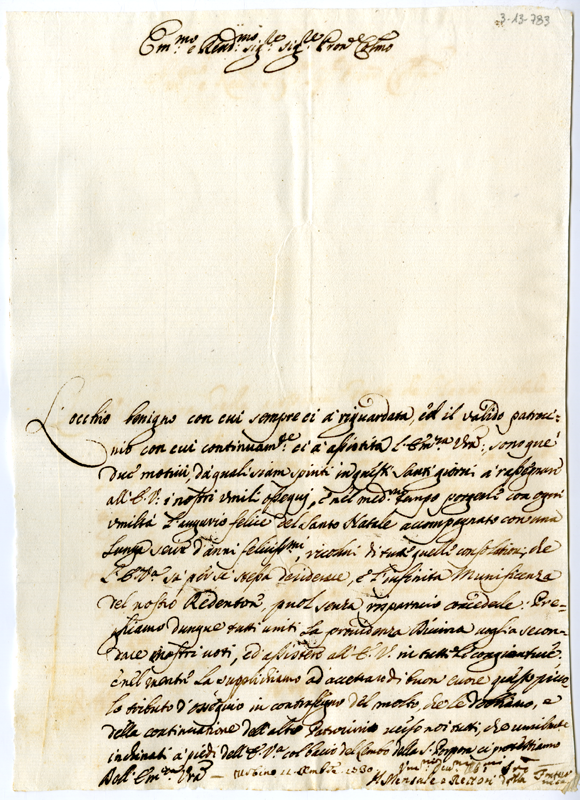 3-13-783
Em.mo e Rend.mo Sig.re Sig.re Pron.e Colmo
L'occhio benigno con cui sempre ci à riguardata, ed il valido patroci-
nio con cui continuam.te ci à assistita l'Em.za Vra; sono que
due motivi, da quali siam spinti in questi Santi giorni à rassegnare
all'E.V. i nostri umili ossequj, e nel med.mo tempo porgerle con ogni
umiltà l'augurio felice del Santo Natale accompagnato con una
lunga serie d'anni felicissimi, ricolmi di tutte quelle consolationi, che
l'E.Va sà per se stessa desiderare, e l'infinita Munificenza
del nostro Redentore, puol senza risparmio concederle: Pre-
ghiamo dunque tutti uniti la providenza Divina voglia secon-
dare i nostri voti, ed assistere all'E.V. in tutte le congiunture
e nel mentre la supplichiamo ad accettare di buon cuore questo picco
lo tributo d'ossequio in contrasegno del molto, che le dobbiamo, e
della continuazione dell'alto Patrocinio verso noi tutti, che umilmente
inchinati a piedi dell'E.Va col bacio del lembo della S. Porpora ci protestiamo
Dell'Em.za Vra Urbino 11 Xmbre 1730
e Rettori della